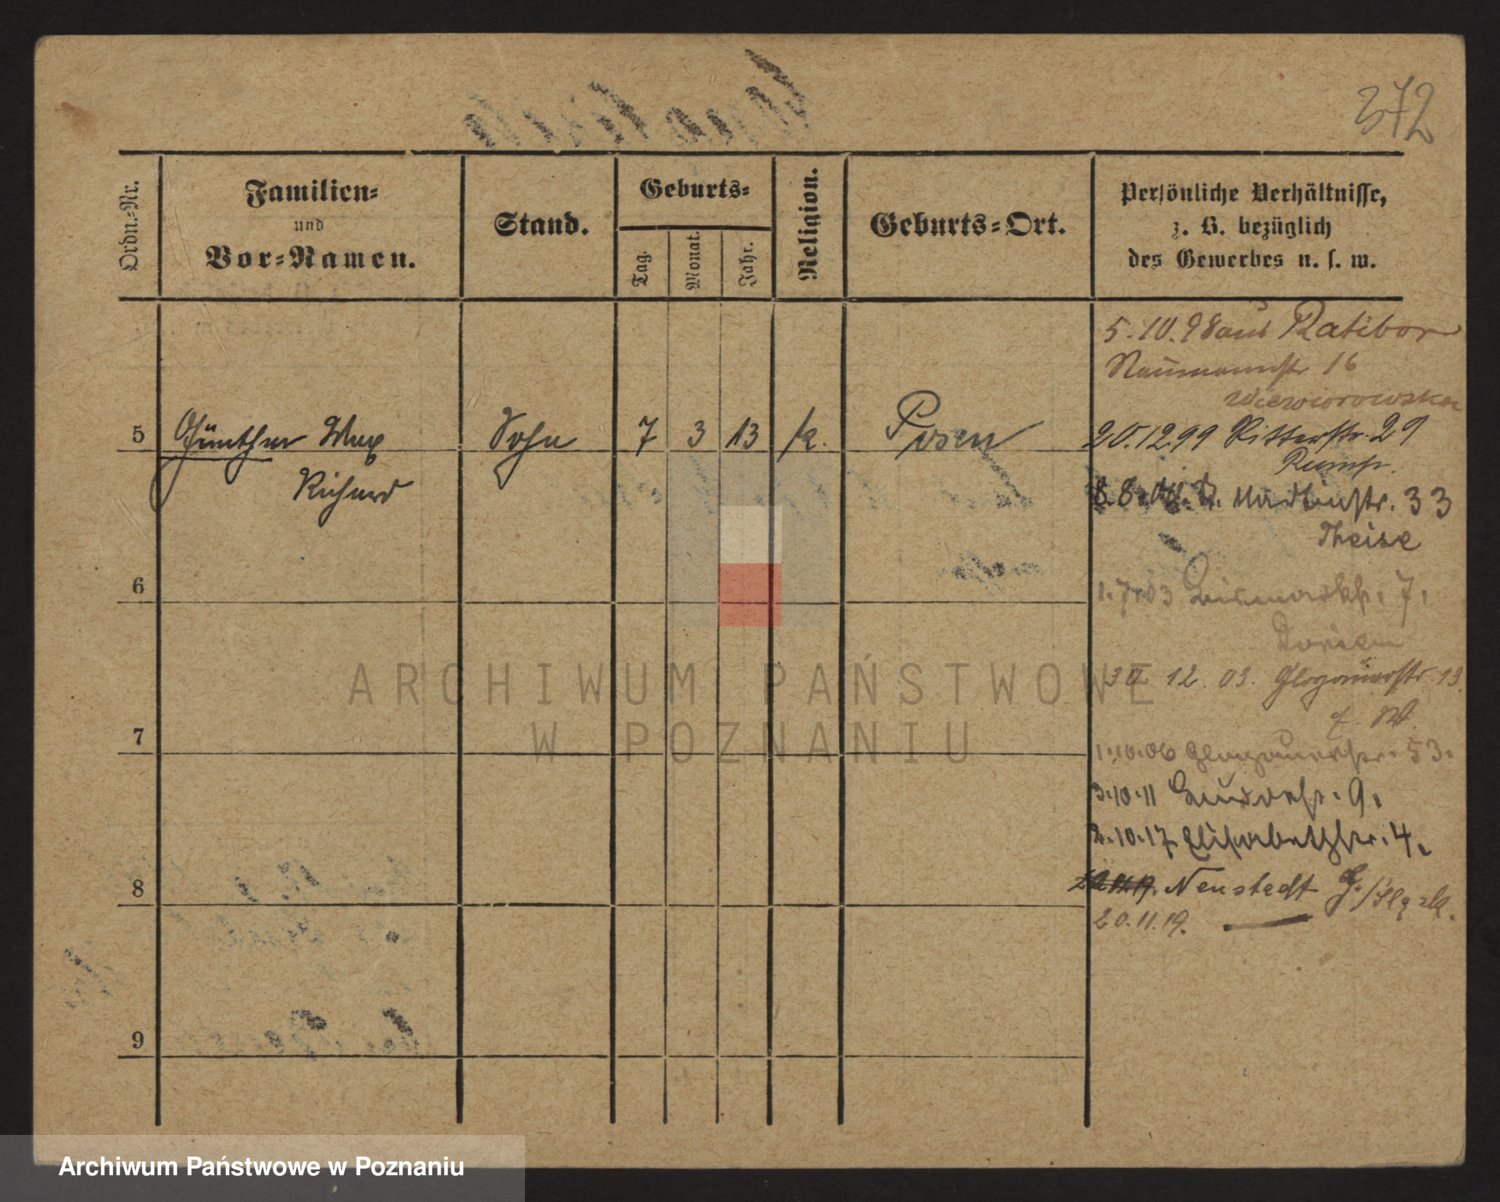 372
Ordn.-Nr.
Familien-
und
Vor-Namen.
Stand.
Geburts-
Tag.
Monat.
Jahr.
Religion.
Geburts-Ort.
Persönliche Verhältnisse,
z. B. bezüglich
des Gewerbes u. s. w.
5.10.98 aus Ratibor
Naumannstr 16
Wiewiorowska
5 Günther Max Sohn 7 3 13 k. Posen
Richard
20.12.99 Ritterstr. 29
Rump.
8.8. 33
Theise
6
1.7.03 Bismarckstr. 7.
30. 12. 03. Glogauerstr. 13.
ARCHIWUM PAŃSTWOWE
W POZNANIU
7
1.10.06 Glogauerstr. 53.
3.10.11 9.
2.10.17. Elisabethstr. 4.
8
Neustadt
20.11.19.
9
Archiwum Państwowe w Poznaniu